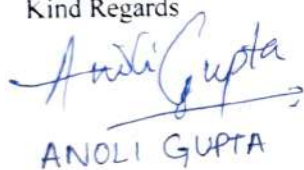 Kind Regards
Anoli Gupta
ANOLI GUPTA